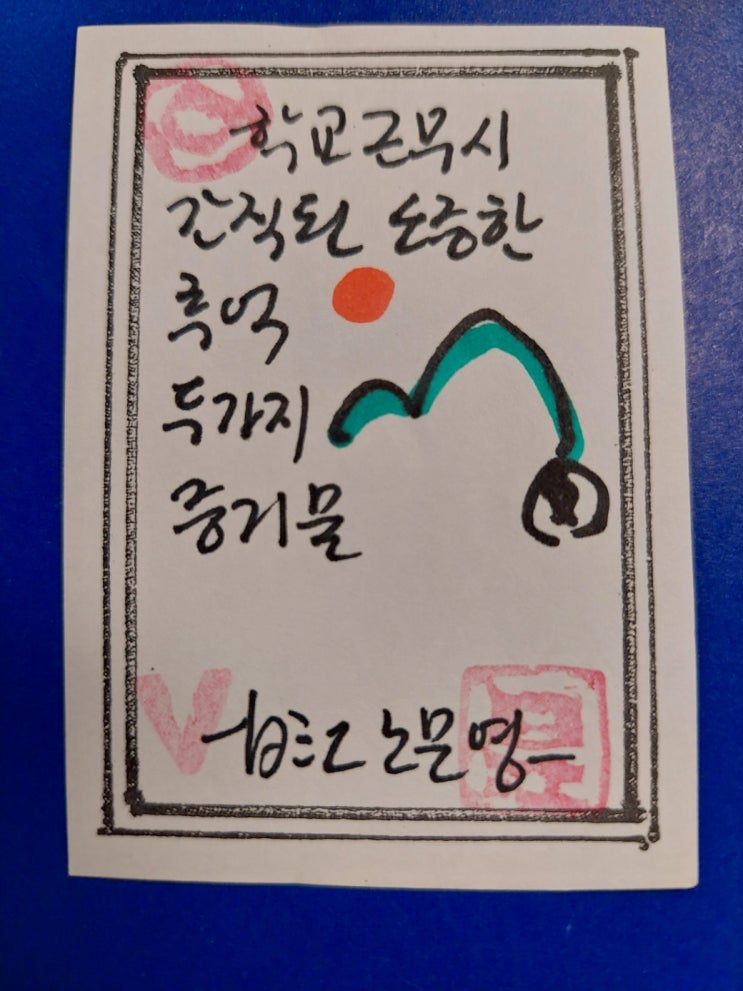 학교근무시
간직된 소중한
추억
두가지
증거물
노문영